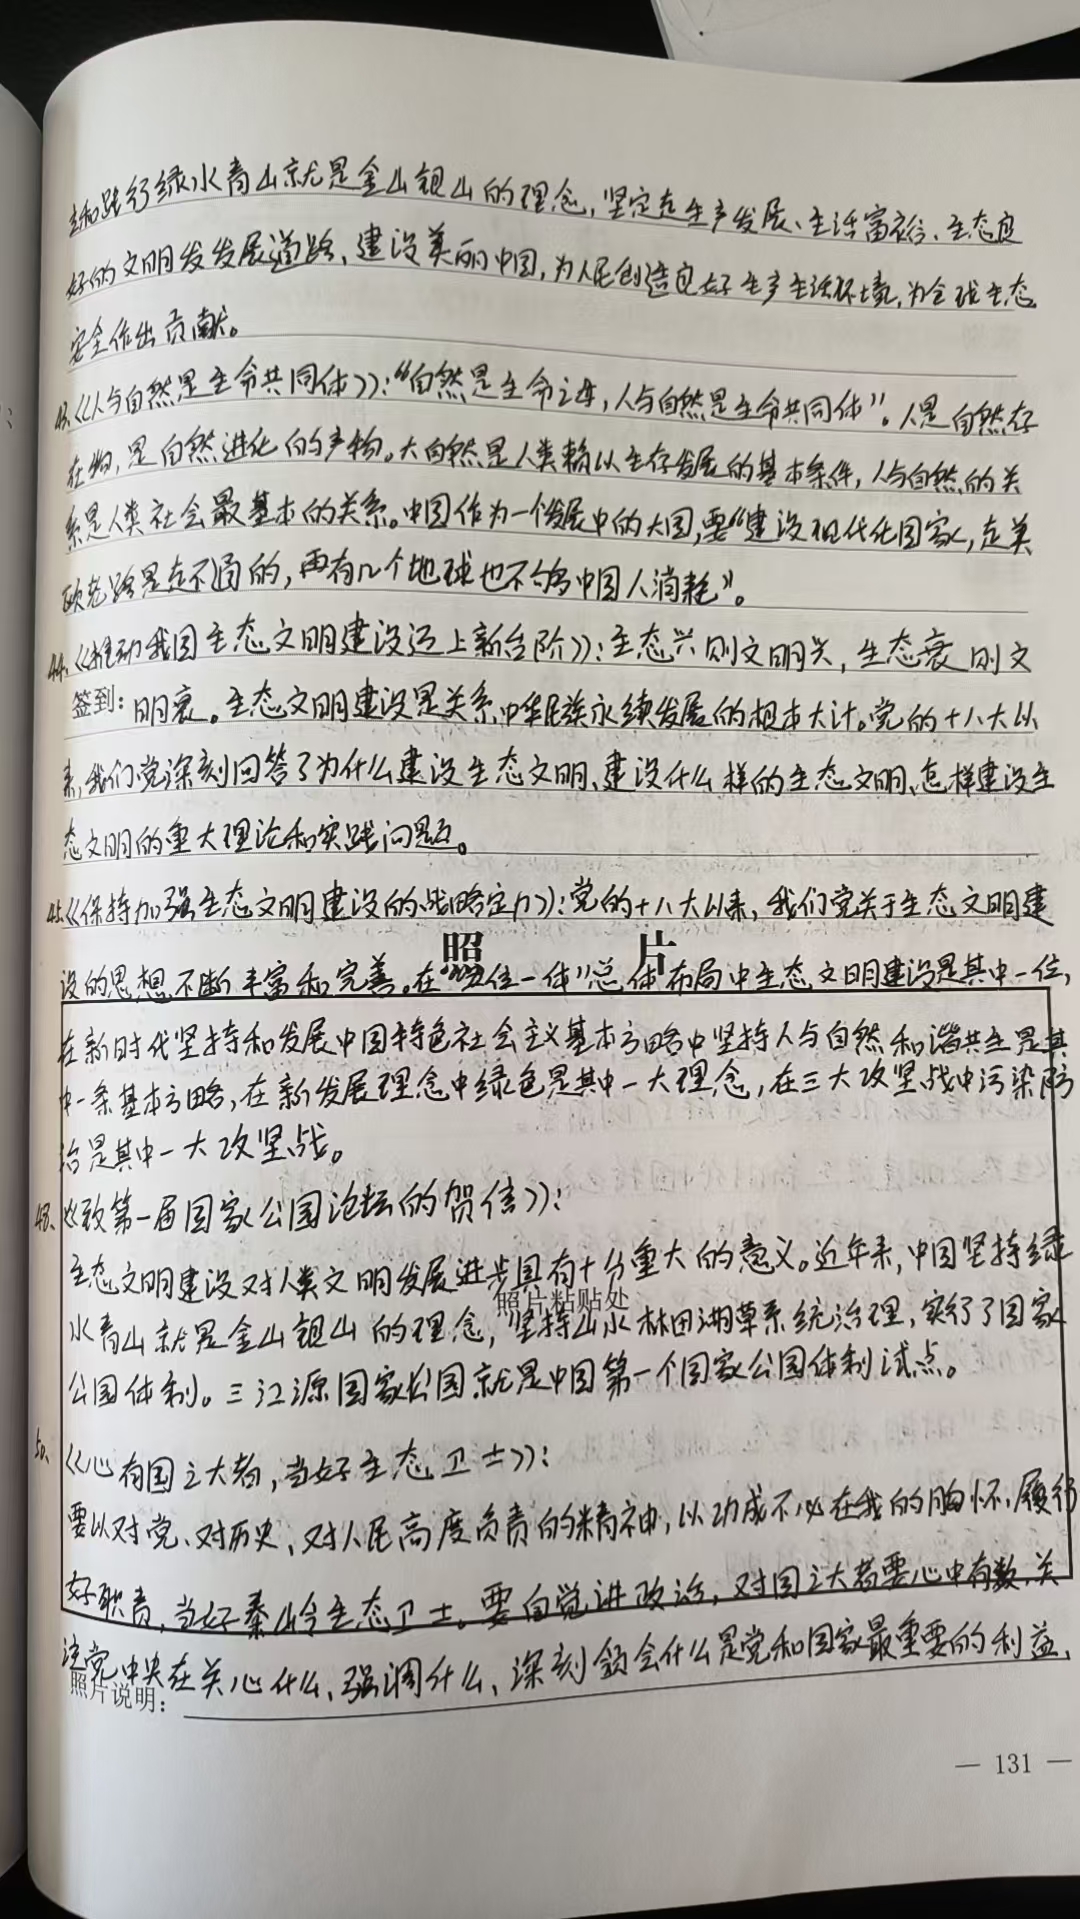 和践行绿水青山就是金山银山的理念，坚定走生产发展、生活富裕、生态良
好的文明发发展道路，建设美丽中国，为人民创造良好生产生活环境，为全球生态
安全作出贡献。
43、《人与自然是生命共同体》：“自然是生命之母，人与自然是生命共同体”。人是自然存
在物，是自然进化的产物。大自然是人类赖以生存发展的基本条件，人与自然的关
系是人类社会最基本的关系。中国作为一个发展中的大国，要“建设现代化国家，走美
欧老路是走不通的，再有几个地球也不够中国人消耗”。
44、《推动我国生态文明建设迈上新台阶》：生态兴则文明兴，生态衰则文
签到：明衰。生态文明建设是关系中华民族永续发展的根本大计。党的十八大以
来，我们党深刻回答了为什么建设生态文明、建设什么样的生态文明、怎样建设生
态文明的重大理论和实践问题。
45、《保持加强生态文明建设的战略定力》：党的十八大以来，我们党关于生态文明建
照 片
设的思想不断丰富和完善。在“五位一体”总体布局中生态文明建设是其中一位，
在新时代坚持和发展中国特色社会主义基本方略中坚持人与自然和谐共生是其
中一条基本方略，在新发展理念中绿色是其中一大理念，在三大攻坚战中污染防
治是其中一大攻坚战。
48、《致第一届国家公园论坛的贺信》：
生态文明建设对人类文明发展进步具有十分重大的意义。近年来，中国坚持绿
照片粘贴处
水青山就是金山银山的理念，坚持山水林田湖草系统治理，实行了国家
公园体制。三江源国家公园就是中国第一个国家公园体制试点。
50、《心有国之大者，当好生态卫士》：
要以对党、对历史、对人民高度负责的精神，以功成不必在我的胸怀，履行
好职责，当好秦岭生态卫士。要自觉讲政治，对国之大者要心中有数，关
注党中央在关心什么、强调什么，深刻领会什么是党和国家最重要的利益、
照片说明：
— 131 —